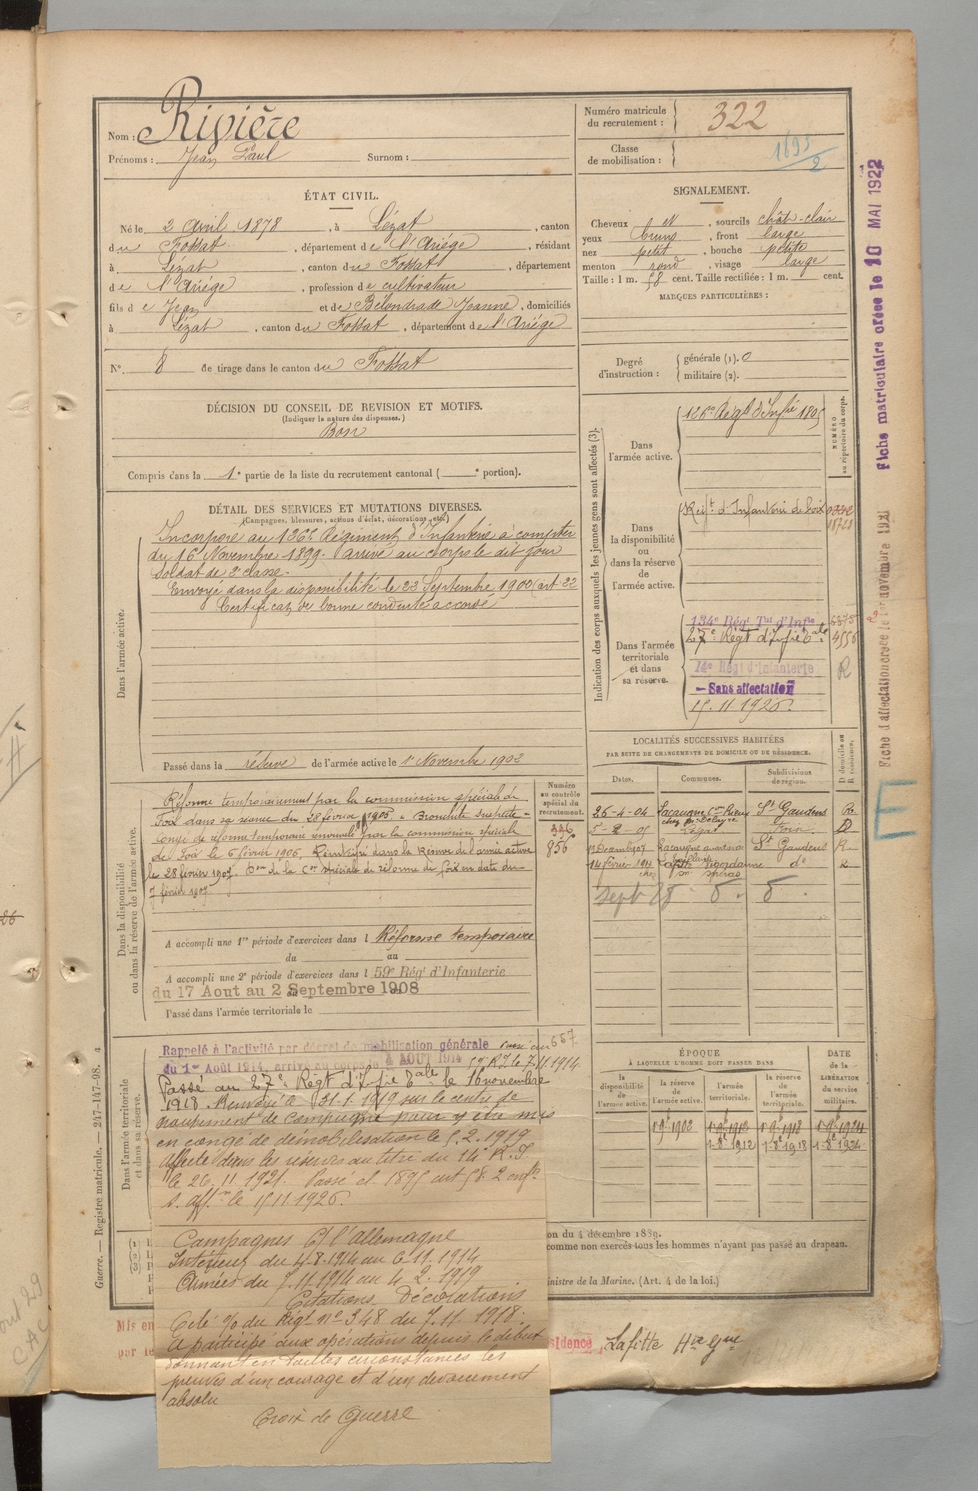 Nom : Rivière
Prénoms : Jean Paul Surnom :
Numéro matricule du recrutement : 322
Classe de mobilisation : 1895/2
ÉTAT CIVIL.
Né le 2 Avril 1878, à Lézat, canton
du Fossat, département de l'Ariège, résidant
à Lézat, canton du Fossat, département
de l'Ariège, profession de cultivateur
fils de Jean et de Bélondrade Jeanne, domiciliés
à Lézat, canton du Fossat, département de l'Ariège
N° 8 de tirage dans le canton du Fossat
SIGNALEMENT.
Cheveux , sourcils chât-clair
yeux bruns, front large
nez petit, bouche petite
menton rond, visage large
Taille : 1 m. 58 cent. Taille rectifiée : 1 m. cent.
MARQUES PARTICULIÈRES :
DÉCISION DU CONSEIL DE REVISION ET MOTIFS.
(Indiquer la nature des dispenses.)
Bon
Compris dans la 1e partie de la liste du recrutement cantonal ( e portion).
Degré d'instruction : générale (1). 0
militaire (2).
DÉTAIL DES SERVICES ET MUTATIONS DIVERSES.
(Campagnes, blessures, actions d'éclat, décorations, etc.)
Dans l'armée active.
Incorporé au 126e Régiment d'Infanterie à compter
du 16 Novembre 1899. Arrivé au corps le dit jour
Soldat de 2e classe.
Envoyé dans la disponibilité le 22 Septembre 1900 (art 22
Certificat de bonne conduite accordé
Passé dans la réserve de l'armée active le 1er Novembre 1902
Indication des corps auxquels les jeunes gens sont affectés (3).
NUMÉRO au répertoire du corps.
Dans l'armée active. 126e Régt d'Infie
Dans la disponibilité ou dans la réserve de l'armée active.
Régt d'Infanterie de Foix
Dans l'armée territoriale et dans sa réserve.
134e Régt Tal d'Infie
27e Régt d'Infie Tale 4556
14e Régt d'Infanterie R
Sans affectation
15.11.1926.
LOCALITÉS SUCCESSIVES HABITÉES
PAR SUITE DE CHANGEMENTS DE DOMICILE OU DE RÉSIDENCE.
Dates. Communes. Subdivisions de région. D. domicile ou R. résidence.
26-4-04 Lacaugne Con Rieux St Gaudens R.
5-2-05 Lézat Foix D
St Gaudens R
14 févr 1911 Lafitte Vigordanne do R
Dans la disponibilité ou dans la réserve de l'armée active.
Numéro au contrôle spécial du recrutement.
336
856
Réformé temporairement par la commission spéciale de
Foix dans sa séance du 28 février 1905 « Bronchite suspecte »
Congé de réforme temporaire renouvelé par la commission spéciale
de Foix le 6 février 1906. Réintégré dans la Réserve de l'armée active
le 28 février 1907. Don de la Con spéciale de réforme de Foix en date du
7 février 1907
A accompli une 1re période d'exercices dans l Réforme temporaire
du au
A accompli une 2e période d'exercices dans l 59e Régt d'Infanterie
du 17 Aout au 2 Septembre 1908
Passé dans l'armée territoriale le
Dans l'armée territoriale et dans sa réserve.
Rappelé à l'activité par décret de mobilisation générale Passé au
du 1er Août 1914, arrivé au corps le 4 AOUT 1914 59e R.I. le 7.11.1914
Passé au 27e Régt d'Infie Tale le 16 novembre
1918. Renvoyé le 31.1.1919 sur le centre de
groupement de campagne pour y être mis
en congé de démobilisation le 5.2.1919
Affecté dans les réserves au titre du 14e R.I.
le 26.11.1921. Passé cl 1895 art 58. 2 enfts
s. affon le 15.11.1926.
Campagnes C/ l'Allemagne
Intérieur du 4-8-1914 au 6-11-1914
Armées du 7.11.1914 au 4.2.1919
Citations, Décorations
Cité o/o du Régt no 348 du 7.11.1918.
A participé aux opérations depuis le début
donnant en toutes circonstances les
preuves d'un courage et d'un dévouement
absolu
Croix de Guerre
ÉPOQUE
À LAQUELLE L'HOMME DOIT PASSER DANS
DATE DE LA LIBÉRATION DU service militaire.
la disponibilité de l'armée active.
la réserve de l'armée active.
l'armée territoriale.
la réserve de l'armée territoriale.
1-9-1902 1-9-1912 1-9-1918 1-9-1924
1-8-1912 1-8-1918 1-8-1924
on du 4 décembre 1889.
comme non exercés tous les hommes n'ayant pas passé au drapeau.
inistre de la Marine. (Art. 4 de la loi.)
Mis en
sidence Lafitte Hte Gne
Guerre. — Registre matricule. — 247-147-98.
Fiche matriculaire créée le 10 MAI 1922
Fiche d'affectation créée le novembre 1921
E